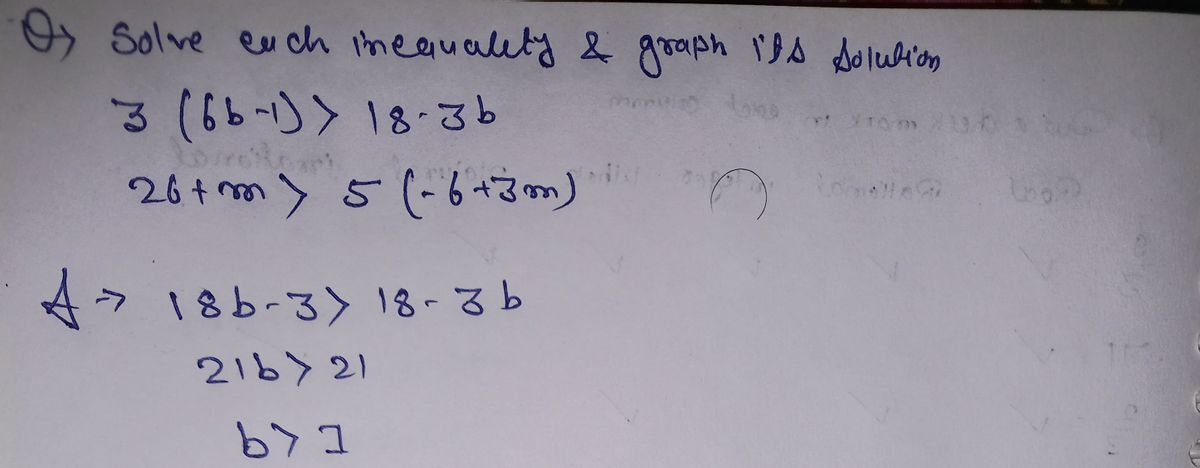 Q→ Solve each inequality & graph its solution
3 (6b-1) > 18-3b
26+m > 5 (-6+3m)
A → 18b-3 > 18-3b
21b > 21
b > 1